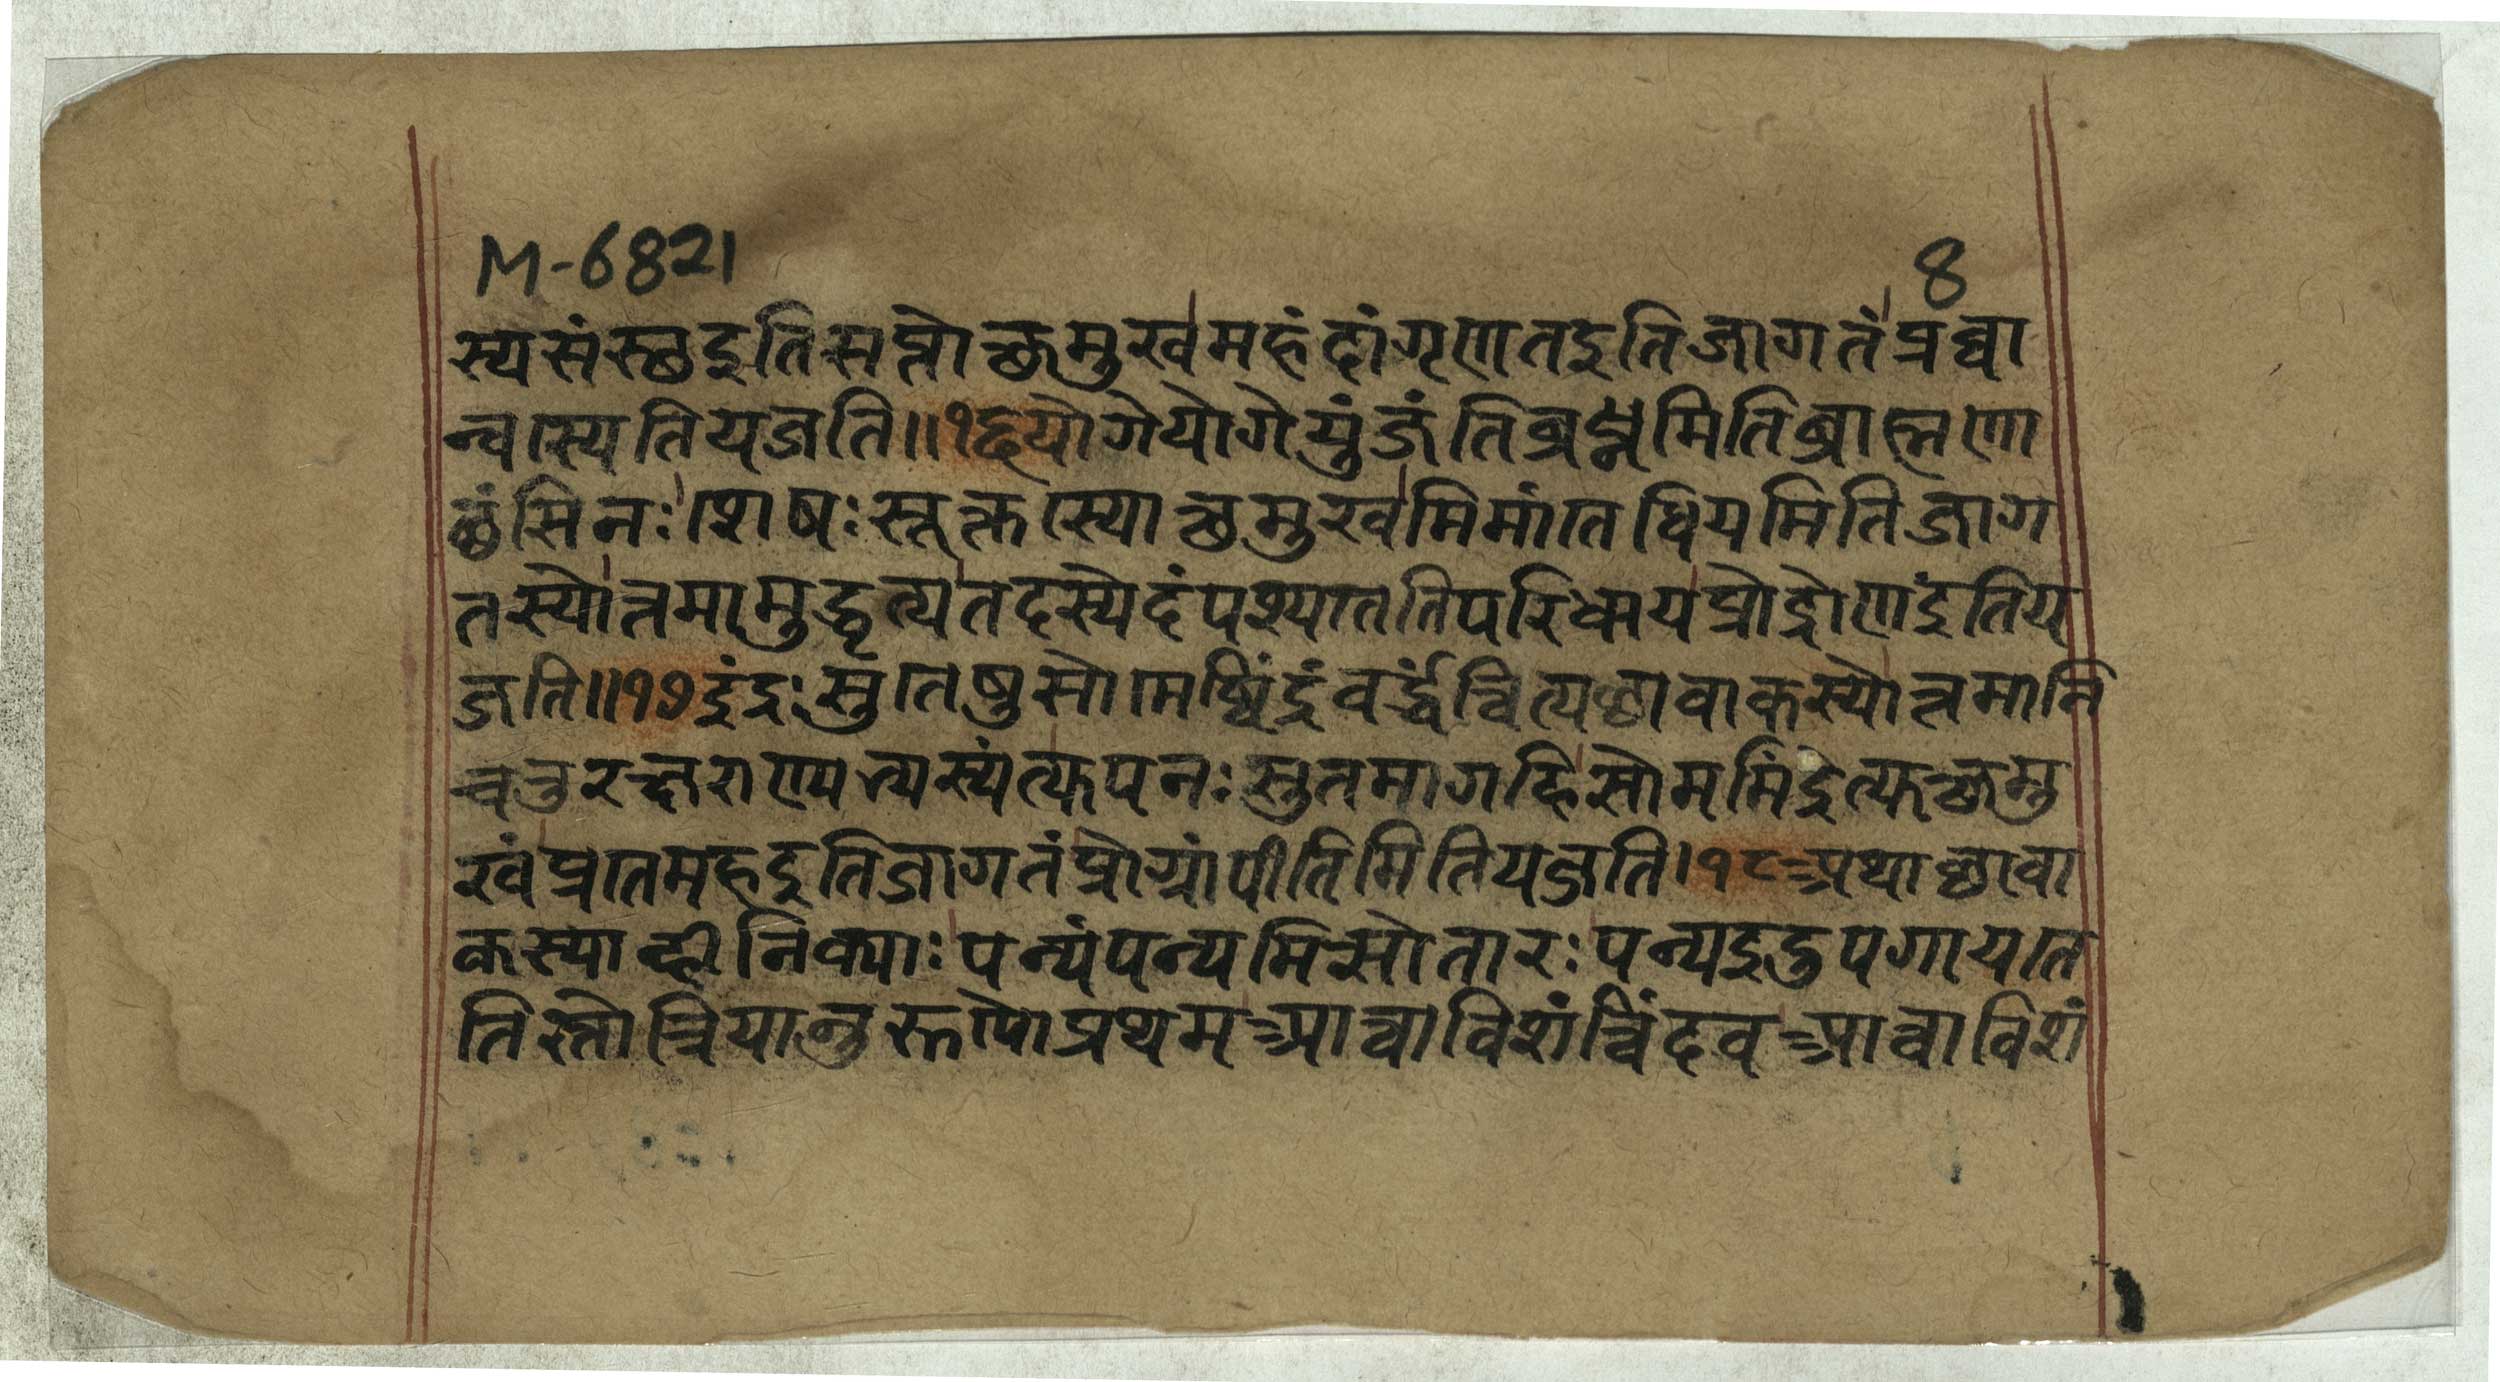 M-6821
8
स्यसंस्छइतिसप्तोच्छमुखेमहंद्रांगृणतइतिजागतंप्रत्वा
न्वास्यतियजति॥१६योगेयोगेयुंजंतिब्रध्नमितिब्राह्मणा
छंसिनःशेषःसूक्तस्योच्छमुखेमिमांतधियमितिजाग
तस्योत्तमामुद्धृत्यतदस्येदंपश्यततेतिपरिधायप्रोद्रोणेंइतिय
जति॥१७इंद्रःसुतेषुसोमेष्विंद्रंवर्द्धंन्वित्यछावाकस्योत्तमानि
चतुरक्षराण्यत्यस्यंत्यपनःसुतमागहिसोममिंद्रेत्यच्छमु
खंप्रतेमहइतिजागतंप्रोग्रांपीतिमितियजति।१८अथाछावा
कस्याह्नीनिक्याःपन्यंपन्यमित्सोतारःपन्यइदुपगायते
तिस्तोत्रियानुरूपोप्रथमआत्वाविशंत्विंदवआत्वाविशं